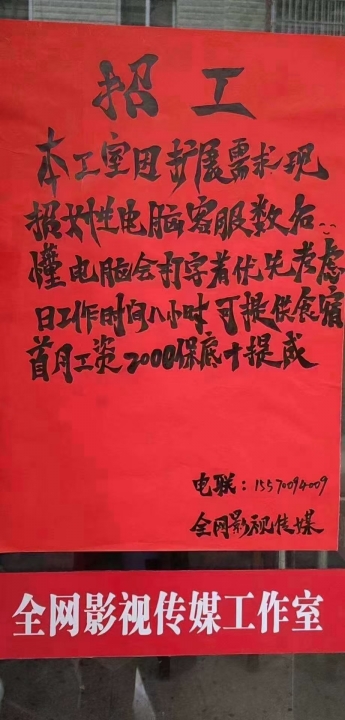 招工
本工室因扩展需求现
招女性电脑客服数名
懂电脑会打字者优先考虑
日工作时间八小时可提供食宿
首月工资2000保底十提成
电联：15570094009
全网影视传媒
全网影视传媒工作室